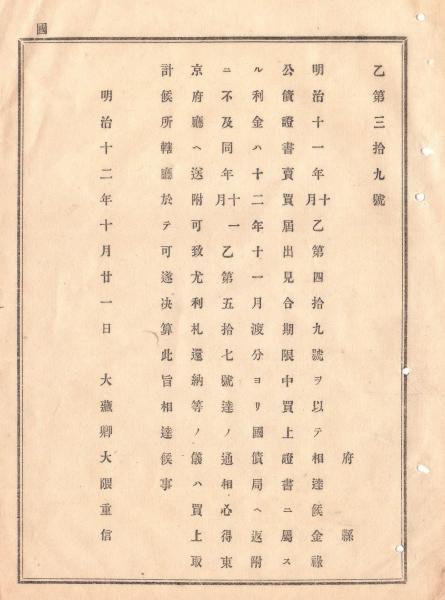 國
乙第三拾九號
府縣
明治十一年十月乙第四拾九號ヲ以テ相達候金祿
公債證書賣買屆出見合期限中買上證書ニ屬ス
ル利金ハ十二年十一月渡分ヨリ國債局ヘ返附
ニ不及同年十一月乙第五拾七號達ノ通相心得東
京府廳ヘ送附可致尤利札還納等ノ儀ハ買上取
計候所轄廳於テ可遂決算此旨相達候事
明治十二年十月廿一日 大藏卿大隈重信